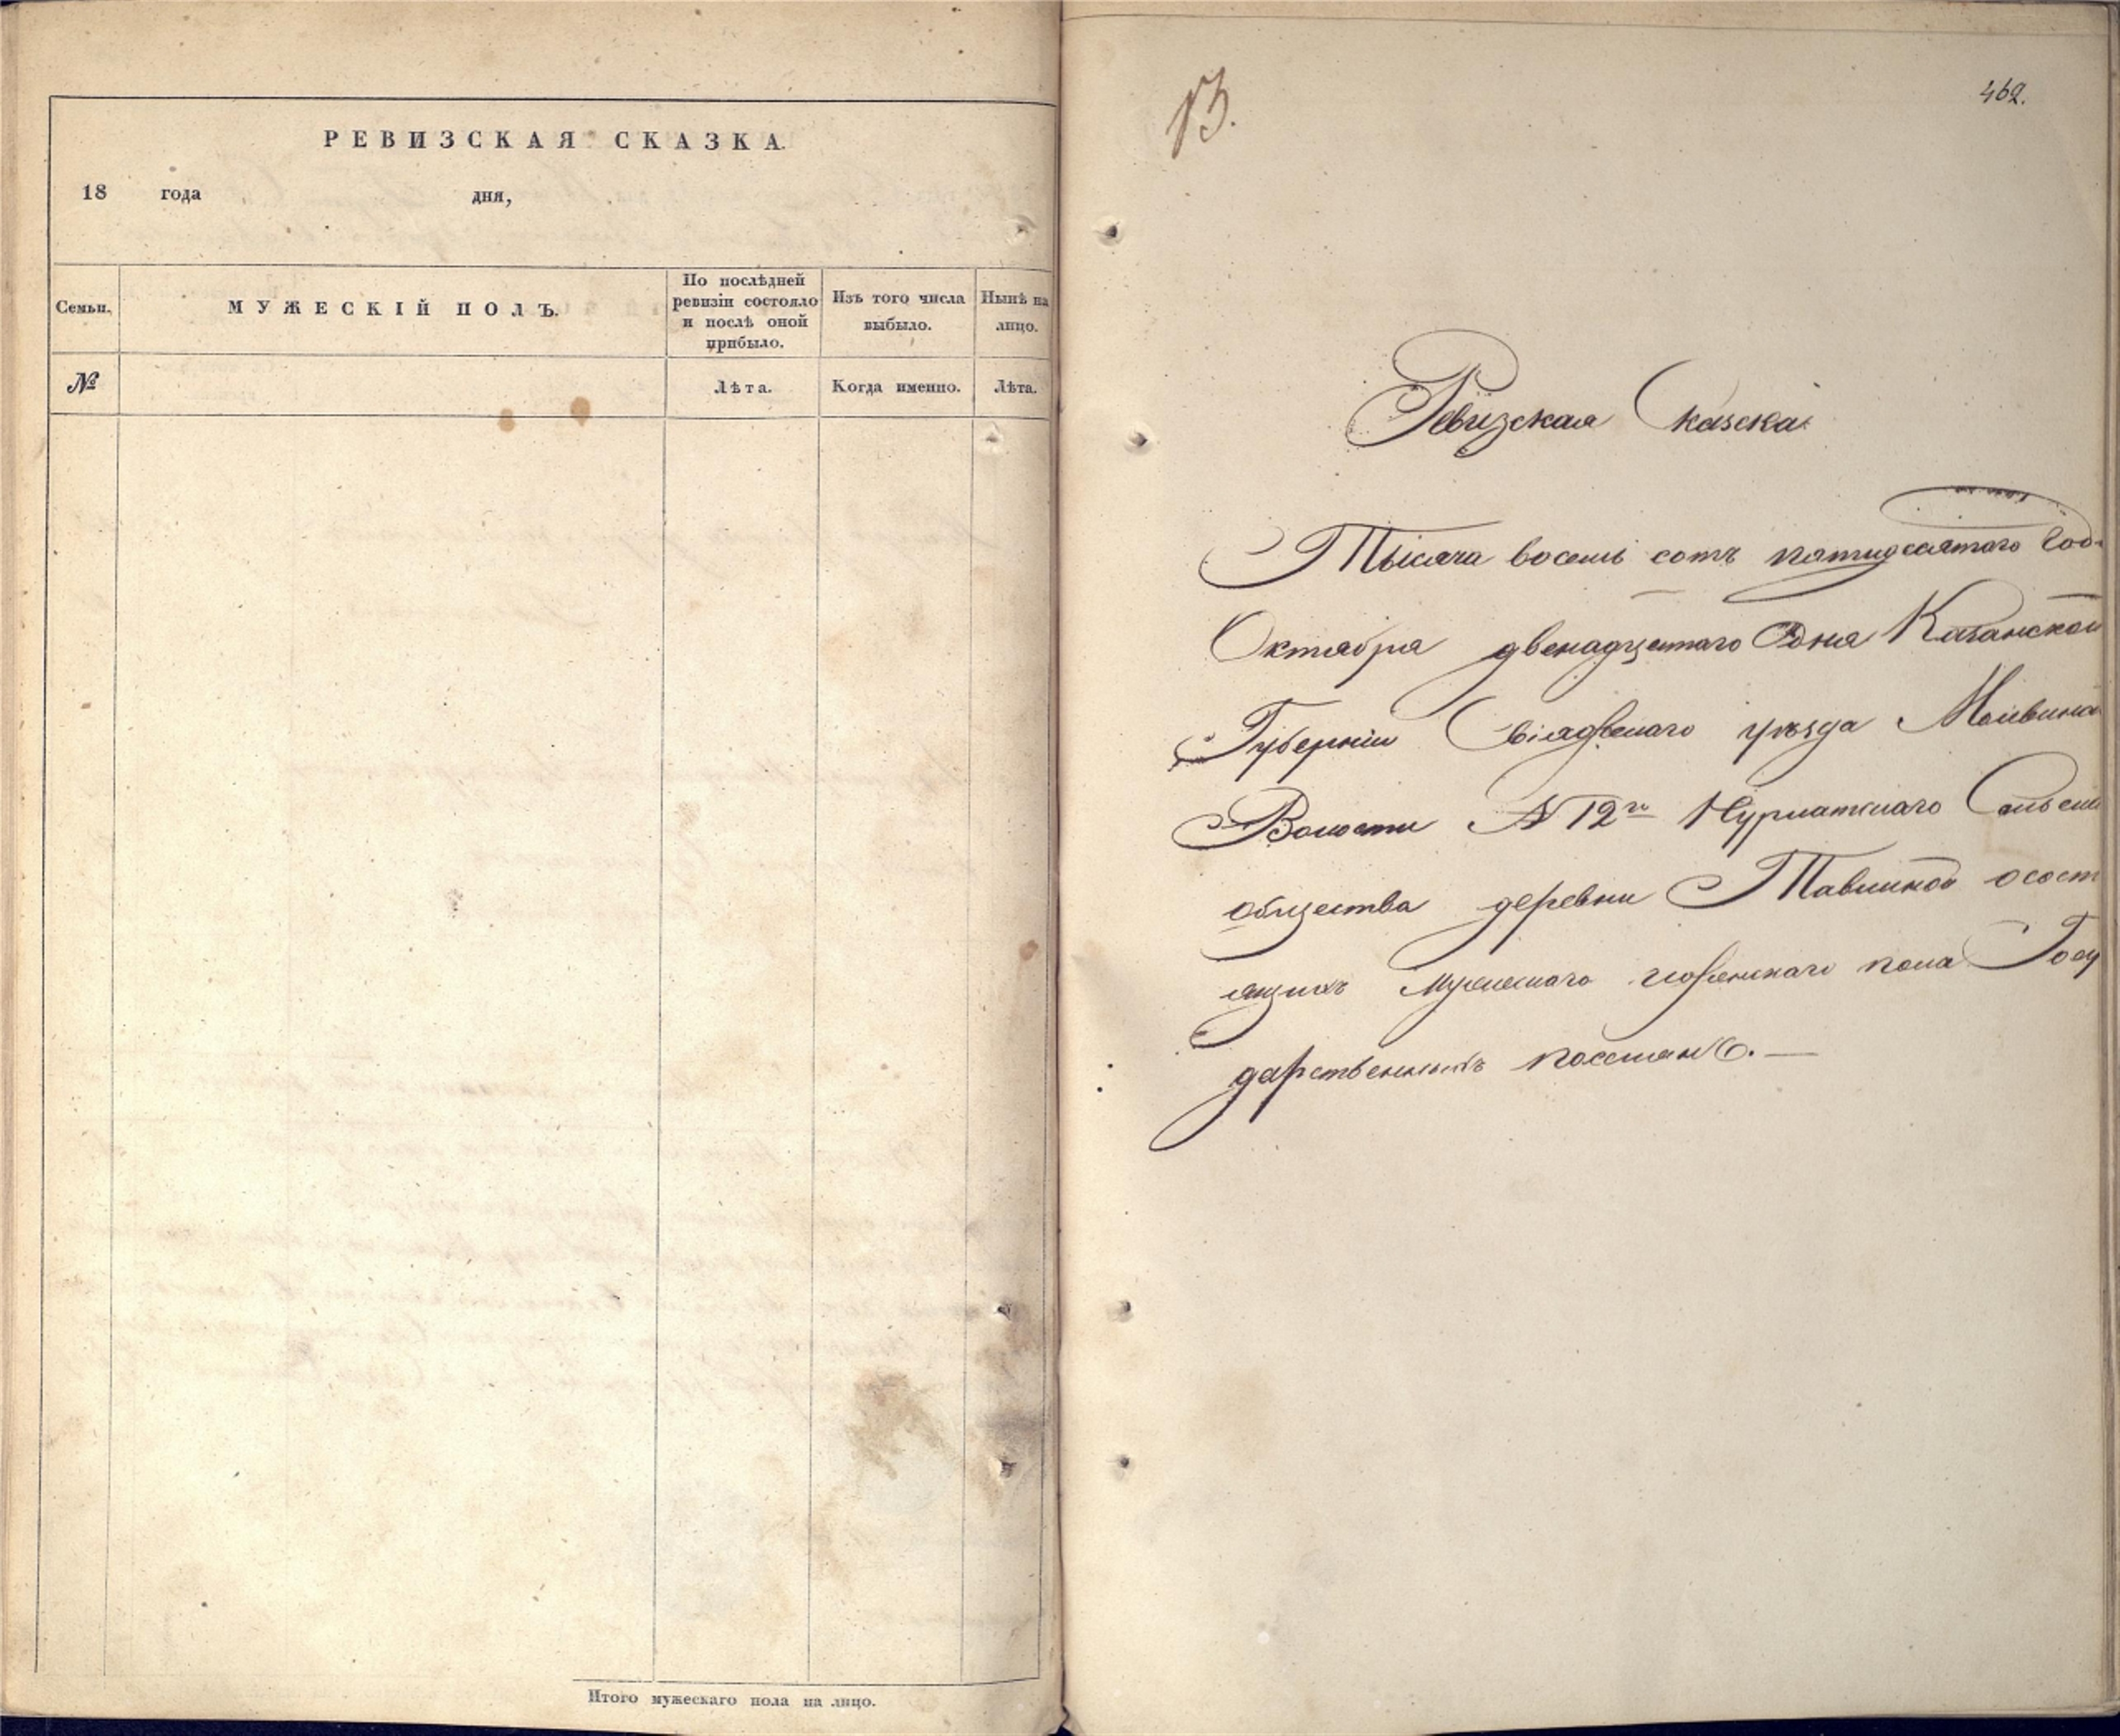 РЕВИЗСКАЯ СКАЗКА.
18 года дня,
Семьи.
МУЖЕСКІЙ ПОЛЪ.
По послѣдней
ревизіи состояло
и послѣ оной
прибыло.
Изъ того числа
выбыло.
Нынѣ на
лицо.
№
Лѣта.
Когда именно.
Лѣта.
Итого мужескаго пола на лицо.
13.
462.
Ревизская Сказска
Тысяча восемь сотъ пятидесятого Год
Октября двенадцатаго Дня Казанской
Губерніи Свіяжскаго уѣзда
Волости № 12го Нурлатскаго Сельска
общества деревни Тавлиной осост
ящихъ Мужескаго иженскаго пола Госу
дарственныхъ